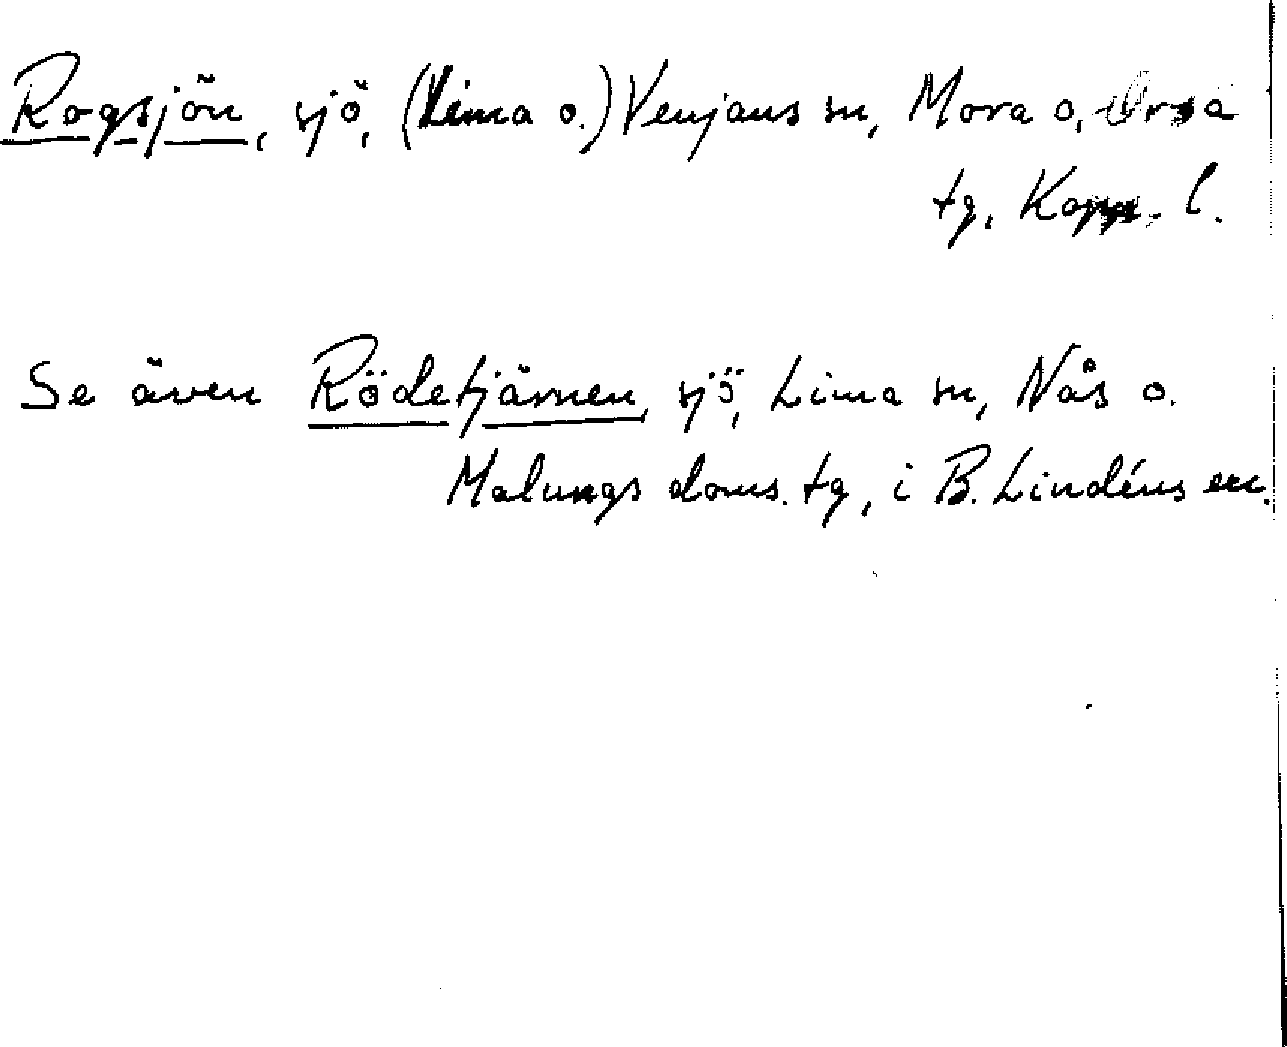 Rogsjön, sjö, (Lima o.) Venjans sn, Mora o. Orsa
tg, Kopp. l.
Se även Rödetjärnen, sjö, Lima sn, Nås o.
Malungs doms. tg, i B. Lindéns ex.